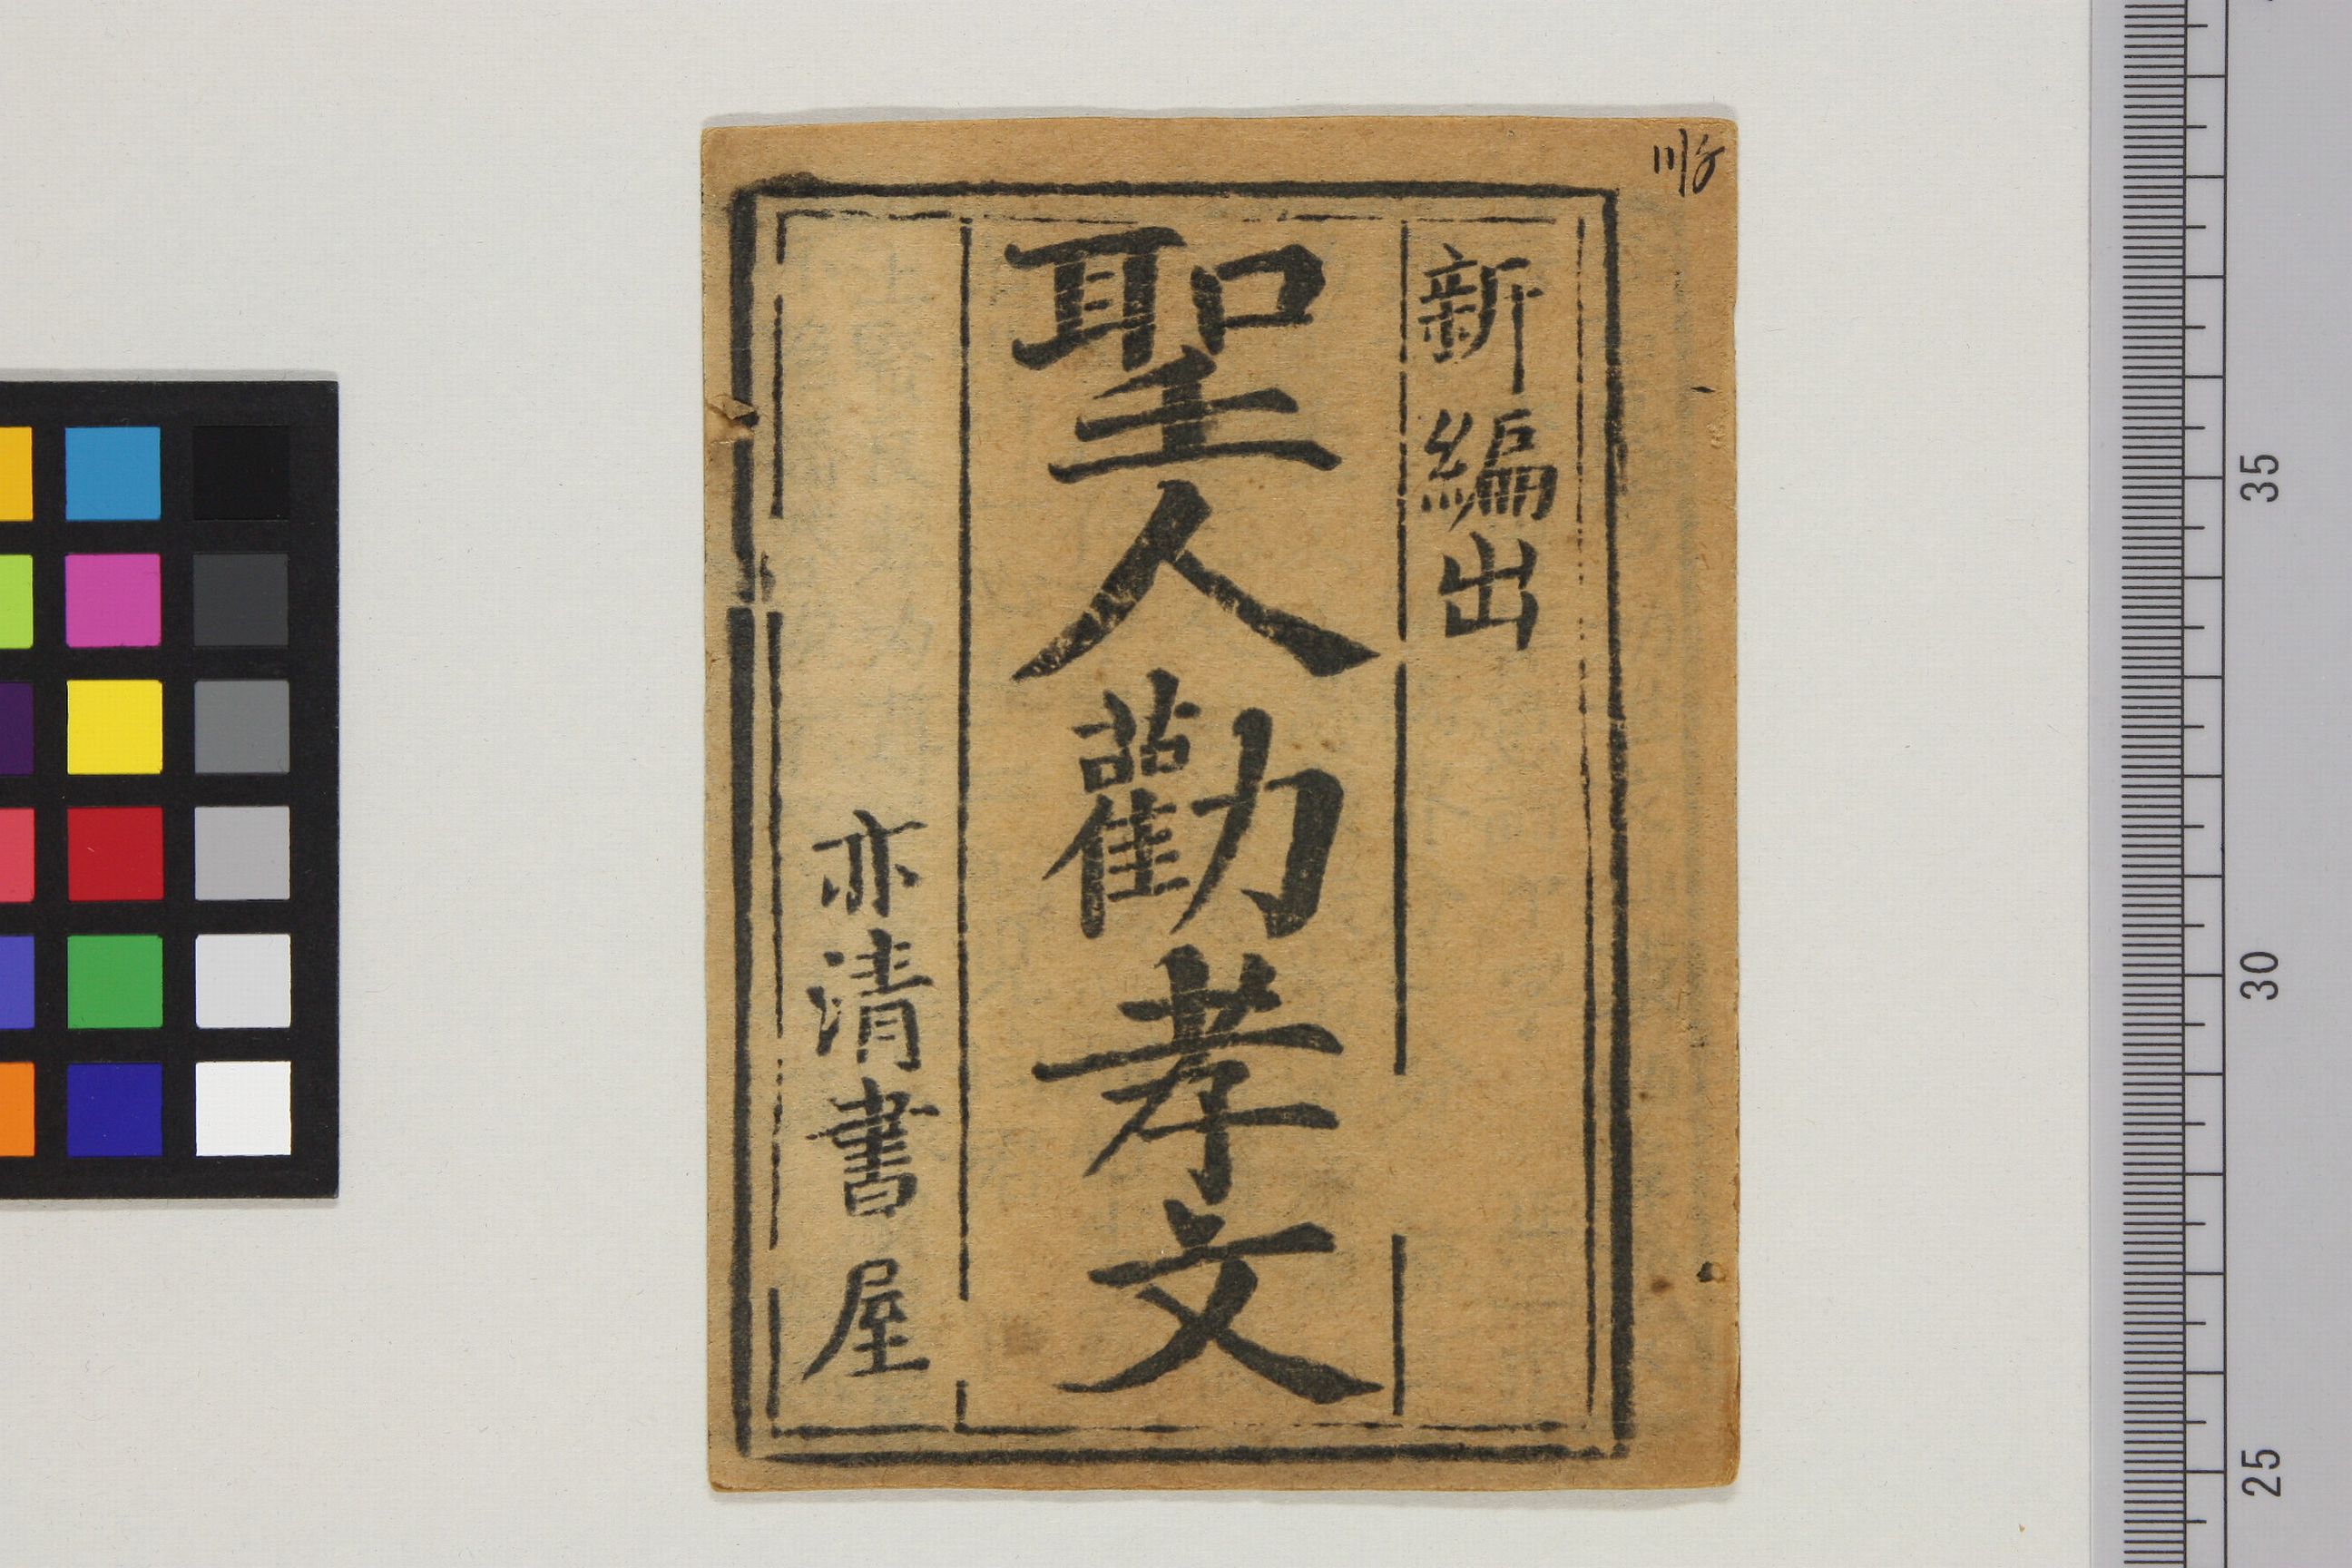 新編出
聖人勸孝文
亦清書屋
35
30
25